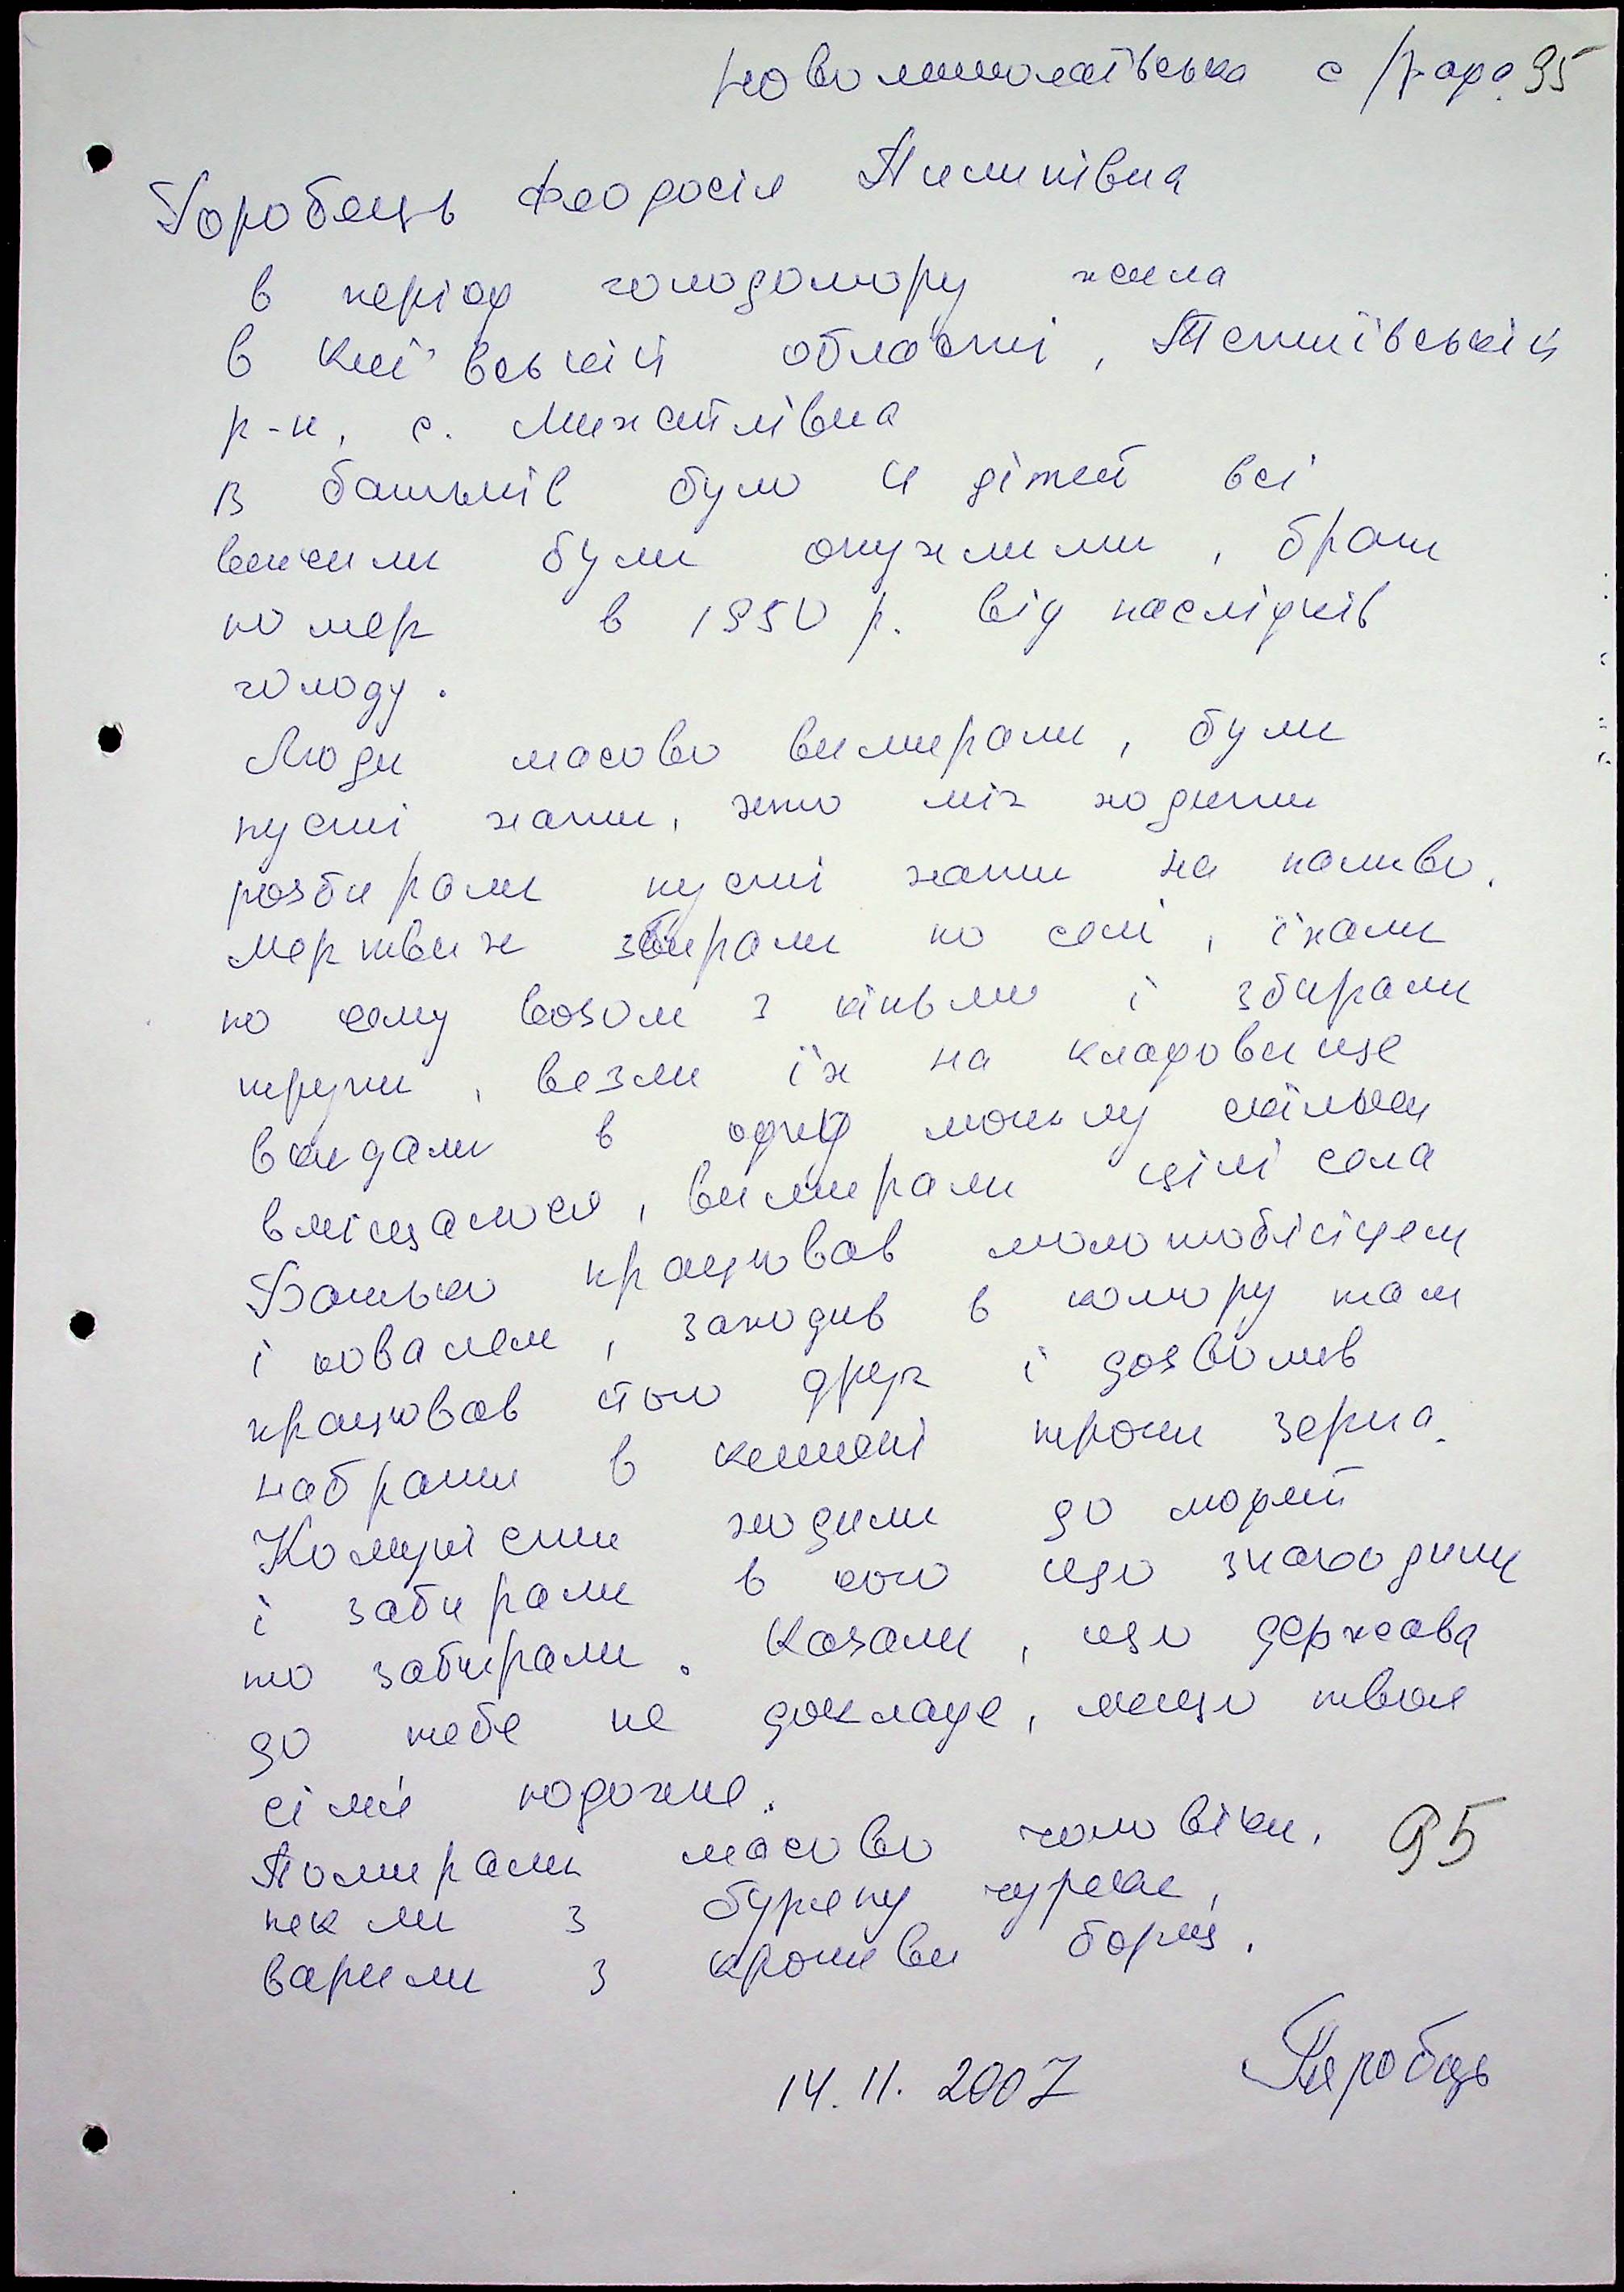 Новомиколаївська с/рада 95
Горобець Феодосія Пилипівна
в період голодомору жила
в Киї'вській області, Тетиївський
р-н, с. Михайлівка
В батьків було 4 дітей всі
вижили були опухлими, брат
помер в 1950 р. від наслідків
голоду.
Люди масово вимирали, були
пусті хати, хто міг ходити
розбирали пусті хати на паливо.
Мертвих збирали по селі, їхали
по селу возом з кіньми і збирали
трупи, везли їх на кладовище
вкидали в одну могилу скільки
вміщалося, вимирали цілі села
Батько працював молотобісцем
і ковалем, заходив в комору там
працював його друг і дозволив
набрати в кишені трохи зерна.
Комуністи ходили до людей
і забирали в кого що знаходили
то забирали. Казали, що держава
до тебе не докладе, якщо твоя
сім'я подохне.
Помирали масово чоловіки. 95
пекли з буряну чуреки,
варили з кропиви борщ.
14.11.2007 Горобець